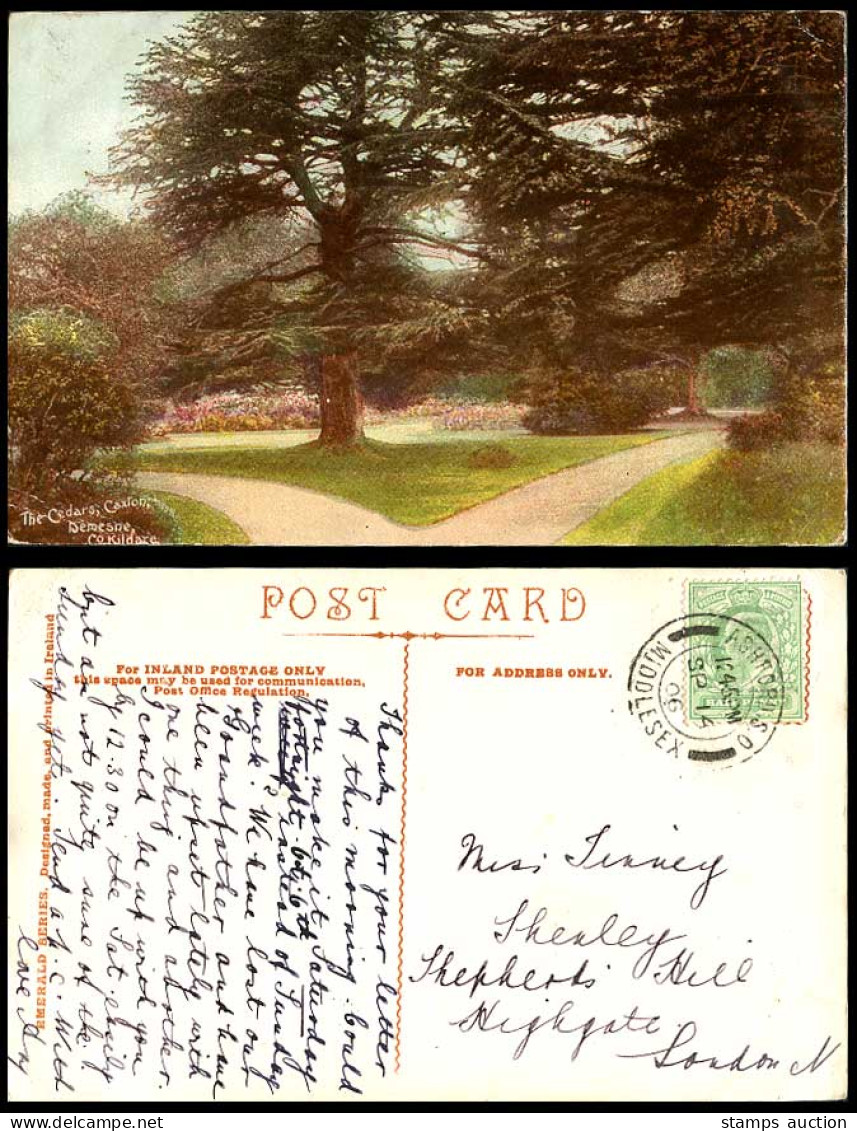 The Cedars, Caxton,
Demesne,
Co. Kildare
POST CARD
For INLAND POSTAGE ONLY
this space may be used for communication.
Post Office Regulation.
FOR ADDRESS ONLY.
EMERALD SERIES. Designed, made, and printed in Ireland
ASHFORD S.O.
MIDDLESEX
SP 14
06
Thanks for your letter
of this morning. Could
you make it Saturday
fortnight. Oct. 6th
instead of Sunday
week? We have lost our
Grandfather and have
been upset lately with
one thing and another.
I could be up with you
by 12.30 on the Sat. easily
but am not quite sure of the
Sunday yet. Send a p.c. With
love Amy
Miss Tenney
Shenley
Shepherds Hill
Highgate
London N
stamps auction